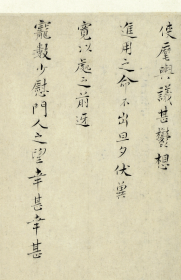 使塵輿議甚鬱想
進用之命不出旦夕伏冀
寬以處之前近
寵數少慰門人之望幸甚幸甚